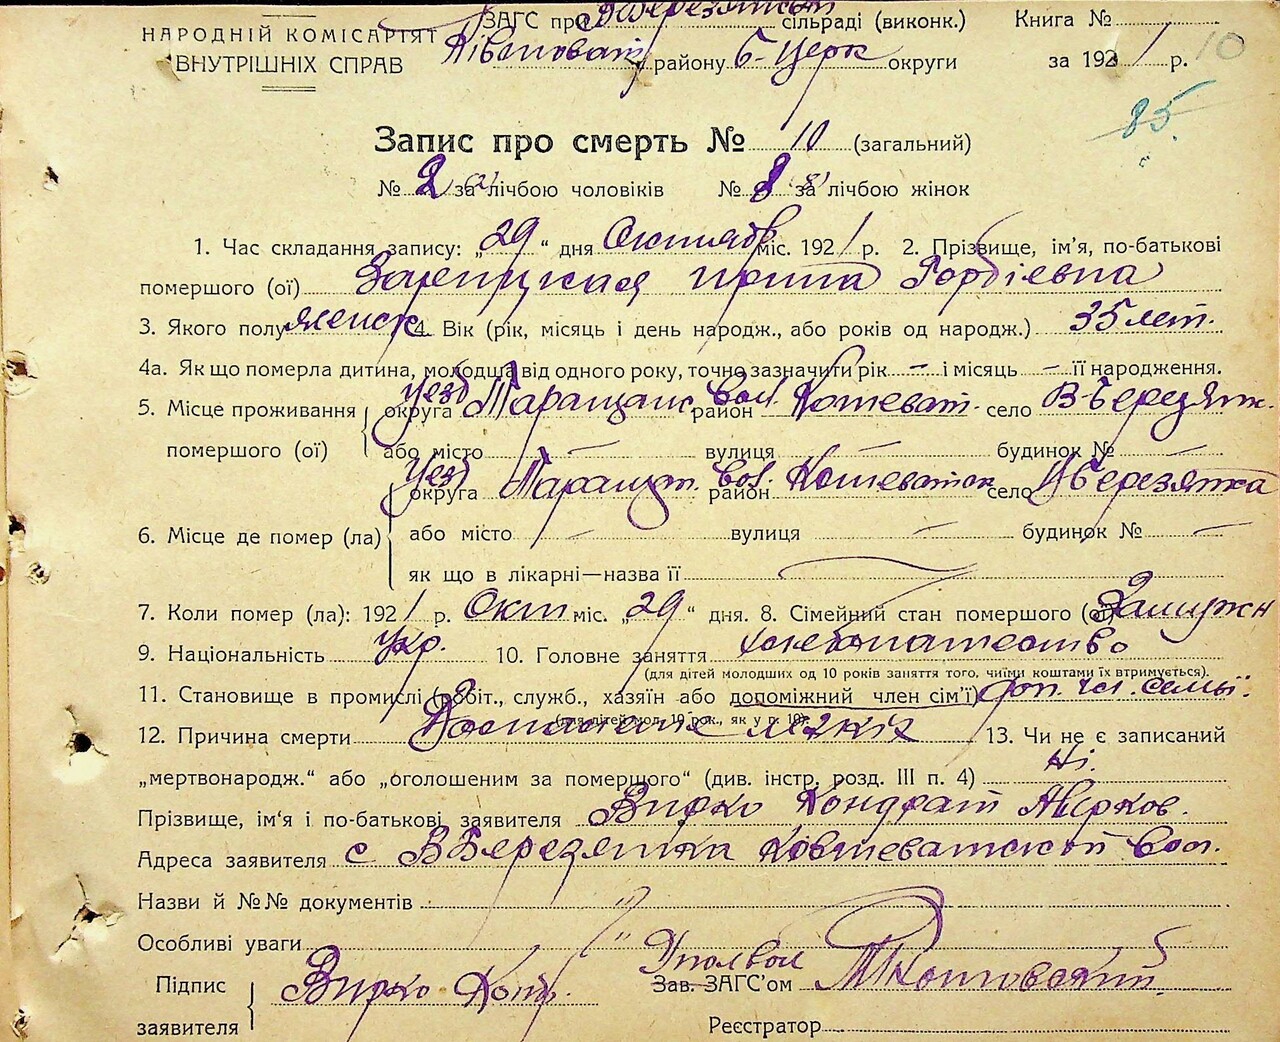 НАРОДНІЙ КОМІСАРІЯТ
ВНУТРІШНІХ СПРАВ
ЗАГС при В Березянській сільраді (виконк.)
району Б-Церк округи
Книга №
за 1921 р. 10
85.
Запис про смерть № 10 (загальний)
№ 2 за лічбою чоловіків № 8 за лічбою жінок
1. Час складання запису: „29“ дня Октиабр міс. 1921 р. 2. Прізвище, ім'я, по-батькові
помершого (ої) Гордіевна
3. Якого полу женск 4. Вік (рік, місяць і день народж., або років од народж.) 35 лет.
4а. Як що померла дитина, молодша від одного року, точно зазначити рік – і місяць – її народження.
5. Місце проживання помершого (ої) округа уезд Таращанс район вол. Кошеват. село В-Березянк.
або місто – вулиця – будинок № –
6. Місце де помер (ла) округа уезд Таращан. район вол. Кошеватск село В Березянка
або місто – вулиця – будинок № –
як що в лікарні—назва її
7. Коли помер (ла): 1921 р. Окт міс. „29“ дня. 8. Сімейний стан помершого (ої) Замужн
9. Національність Укр. 10. Головне заняття хлебопашество
(для дітей молодших од 10 років заняття того, чиїми коштами їх втримується).
11. Становище в промислі (робіт., служб., хазяїн або допоміжний член сім'ї) доп. чл. семьї.
(для дітей мол. 10 рок., як у р. 10).
12. Причина смерти 13. Чи не є записаний
„мертвонародж.“ або „оголошеним за помершого“ (див. інстр. розд. III п. 4) Ні.
Прізвище, ім'я і по-батькові заявителя Вирко Кондрат Аверков.
Адреса заявителя с В Березянка Ковшеватской вол.
Назви й №№ документів "
Особливі уваги "
Підпис заявителя Вирко Конд.
Зав. ЗАГС'ом
Реєстратор